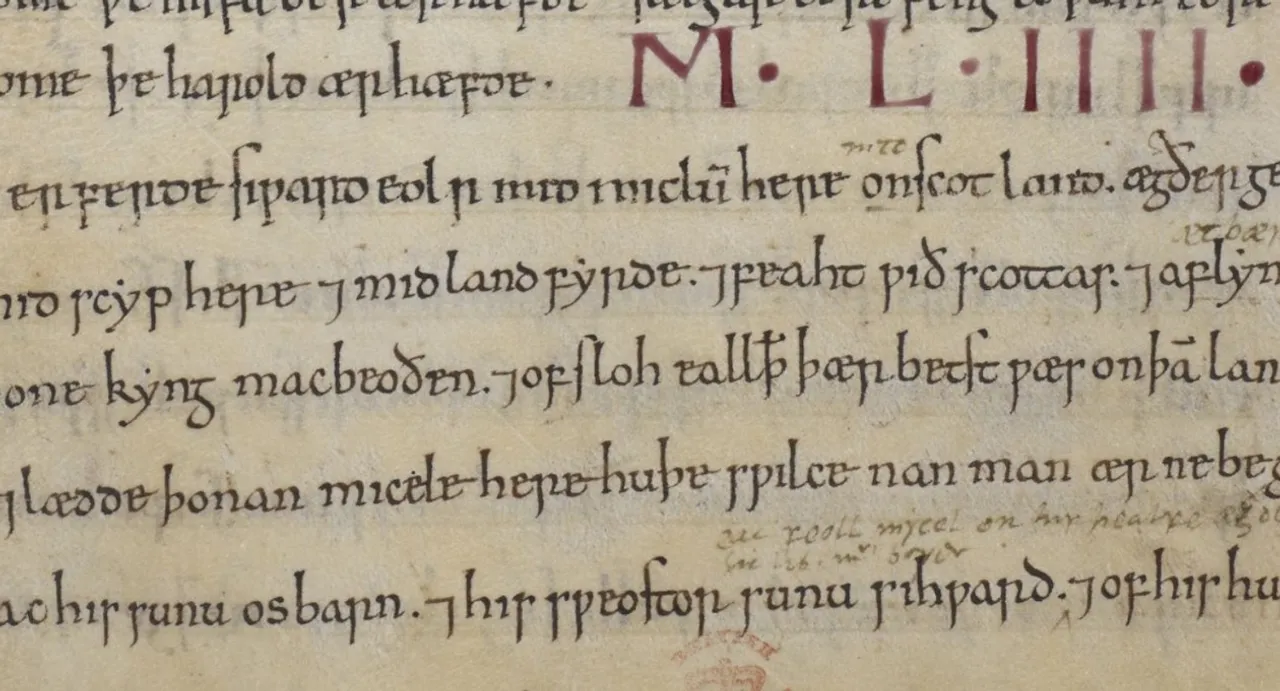 ome þe harold ær hæfde · M · L · IIII ·
er ferde siƿard eol r mid miclū here on scot land. ægðer ge
mid scyp here ⁊ mid land fyrde. ⁊ feaht ƿið scottas. ⁊ aflym
one kyng macbeoðen. ⁊ ofsloh eall ꝥ þær betst ƿæs on þā lan
⁊ lædde þonan micele here huþe sƿilce nan man ær ne beg
ac his sunu osbarn. ⁊ his sƿeostor sunu sihƿard. ⁊ of his hu